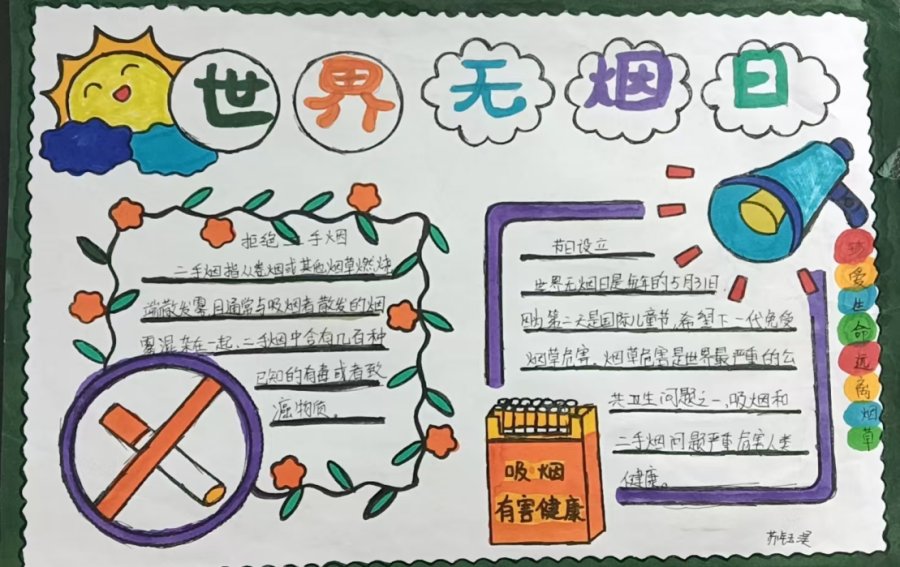 世界无烟日
拒绝二手烟
二手烟指从卷烟或其他烟草燃烧
端散发雾且通常与吸烟者散发的烟
雾混杂在一起.二手烟中含有几百种
已知的有毒或者致
癌物质。
吸烟
有害健康
节日设立
世界无烟日是每年的5月31日,
因为第二天是国际儿童节,希望下一代免受
烟草危害.烟草危害是世界最严重的公
共卫生问题之一,吸烟和
二手烟问题严重危害人类
健康。
珍爱生命远离烟草